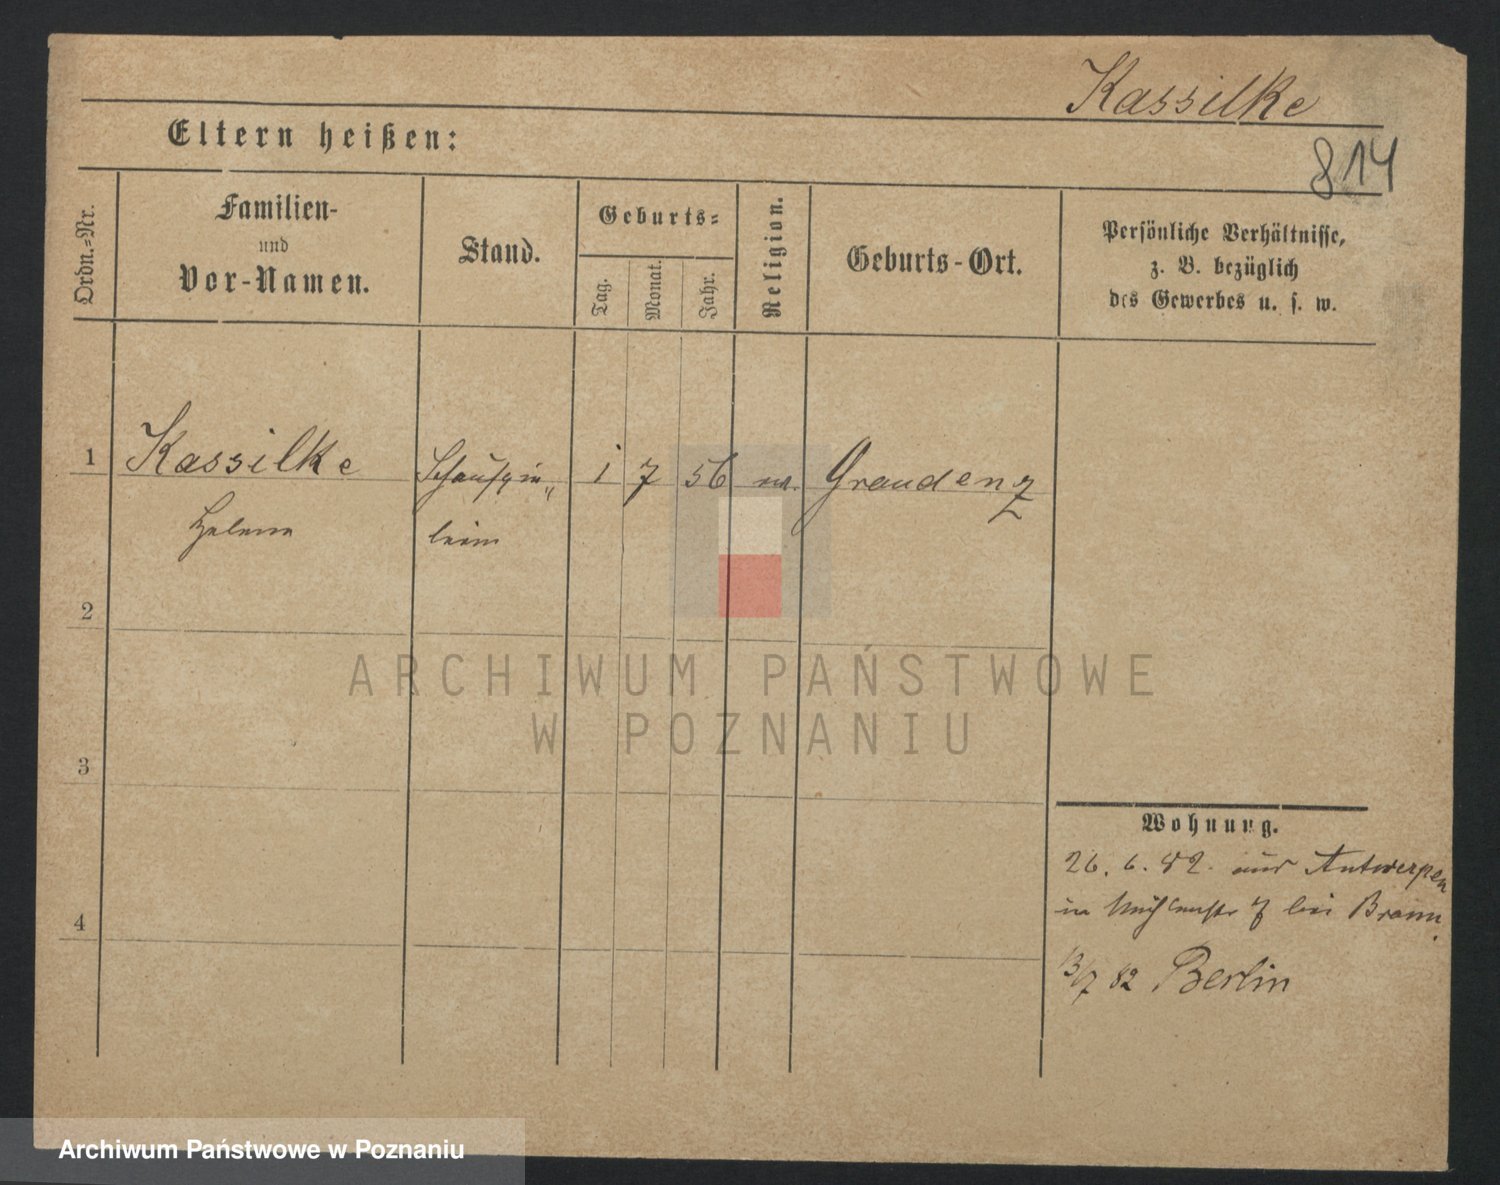 Kassilke
Eltern heißen:
814
Ordn.=Nr.
Familien-
und
Vor-Namen.
Stand.
Geburts=
Tag.
Monat.
Jahr.
Religion.
Geburts-Ort.
Persönliche Verhältnisse,
z. B. bezüglich
des Gewerbes u. s. w.
1
Kassilke
Helena
Schauspie„
lerin
1
7
56
Graudenz
2
3
4
Wohnung.
26. 6. 82. aus Antwerpen
in Mühlenstr 7 bei Braun.
13/7 82 Berlin
ARCHIWUM PAŃSTWOWE
W POZNANIU
Archiwum Państwowe w Poznaniu